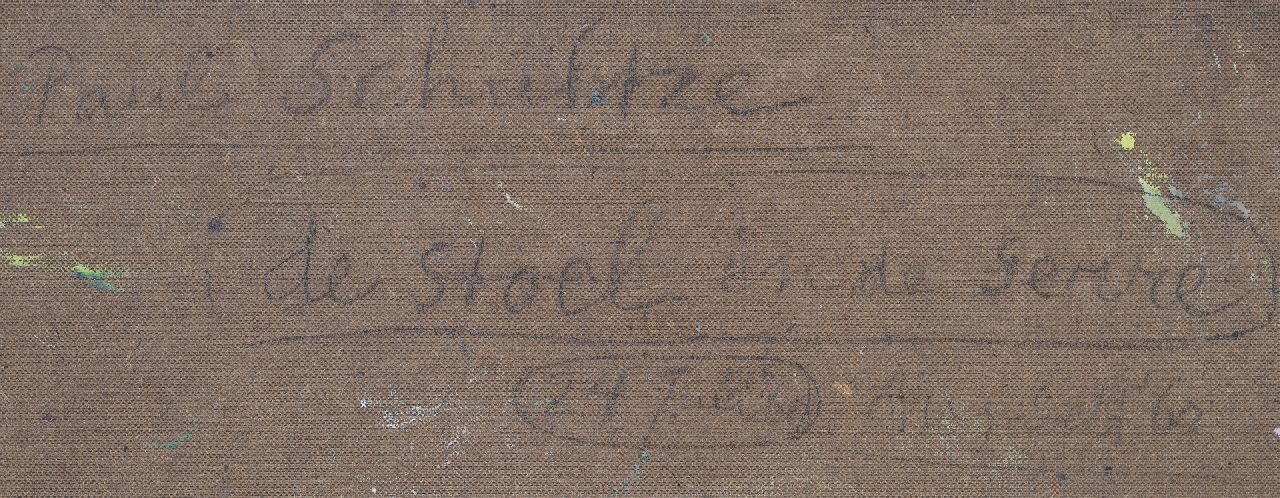 Paul Schultze
de Stoel in de Serre
24